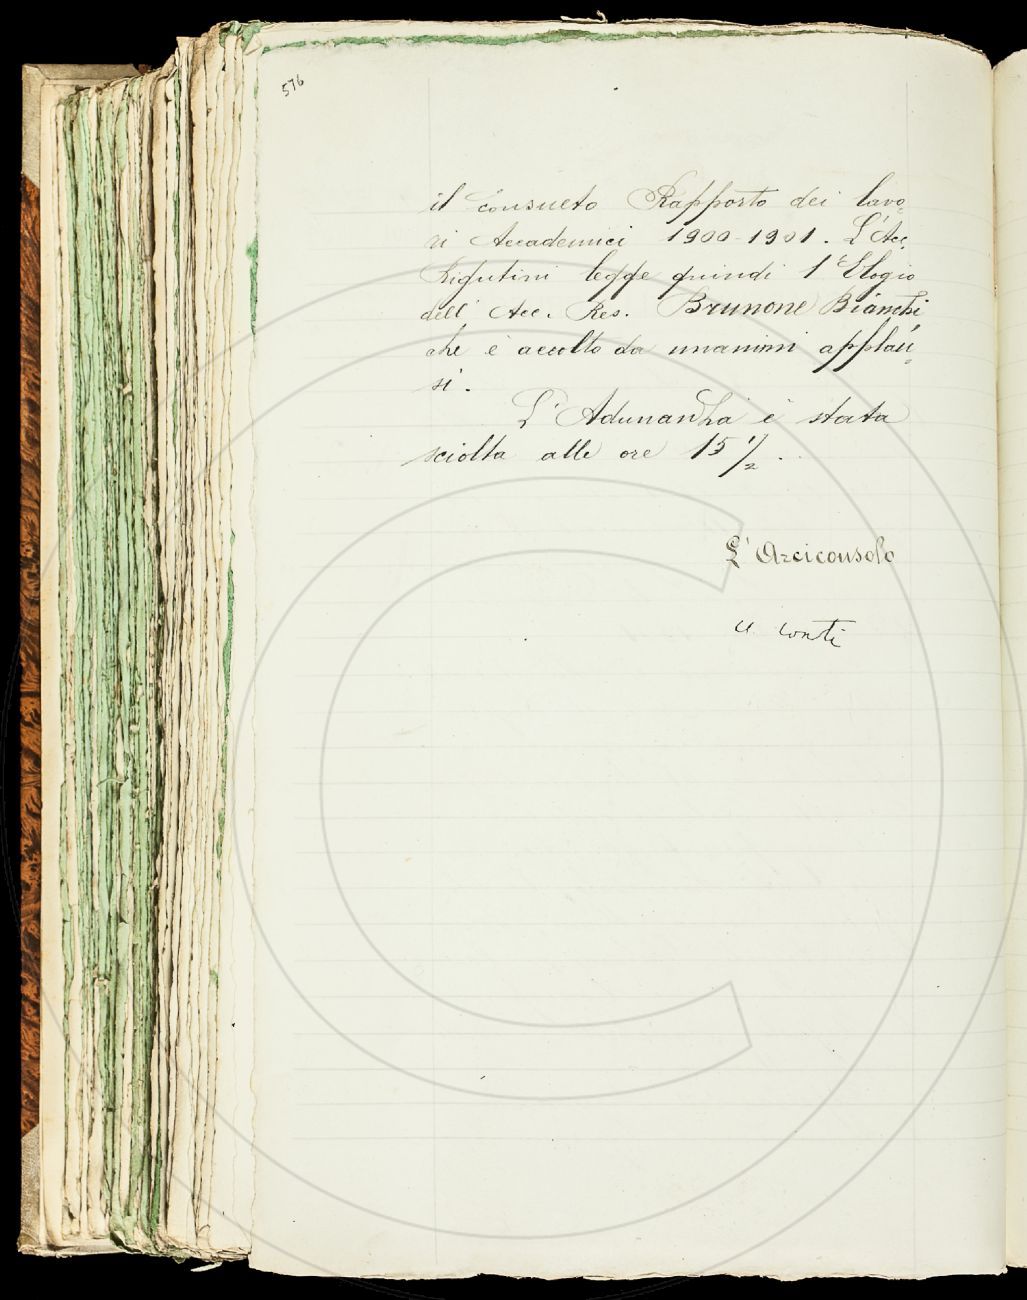 576
il consueto Rapporto dei lavo=
ri Accademici 1900-1901. L'Acc.
Rigutini legge quindi l'Elogio
dell'Acc. Res. Brunone Bianchi
che è accolto da unanimi applau=
si.
L'Adunanza è stata
sciolta alle ore 15 1/2.
L'Arciconsolo
A. Conti